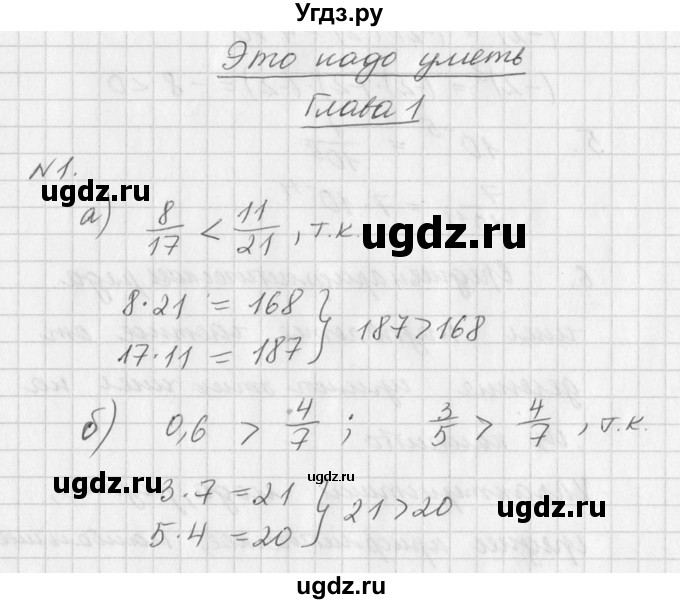 Угдз.ру
Это надо уметь
Глава 1
N1.
ugdz.ru
а) 8/17 < 11/21, т.к.
ugdz.ru
8·21 = 168 } 187>168
17·11 = 187
б) 0,6 > 4/7; 3/5 > 4/7, т.к.
ugdz.ru
3·7 = 21 } 21>20
5·4 = 20
ugdz.ru
ugdz.ru